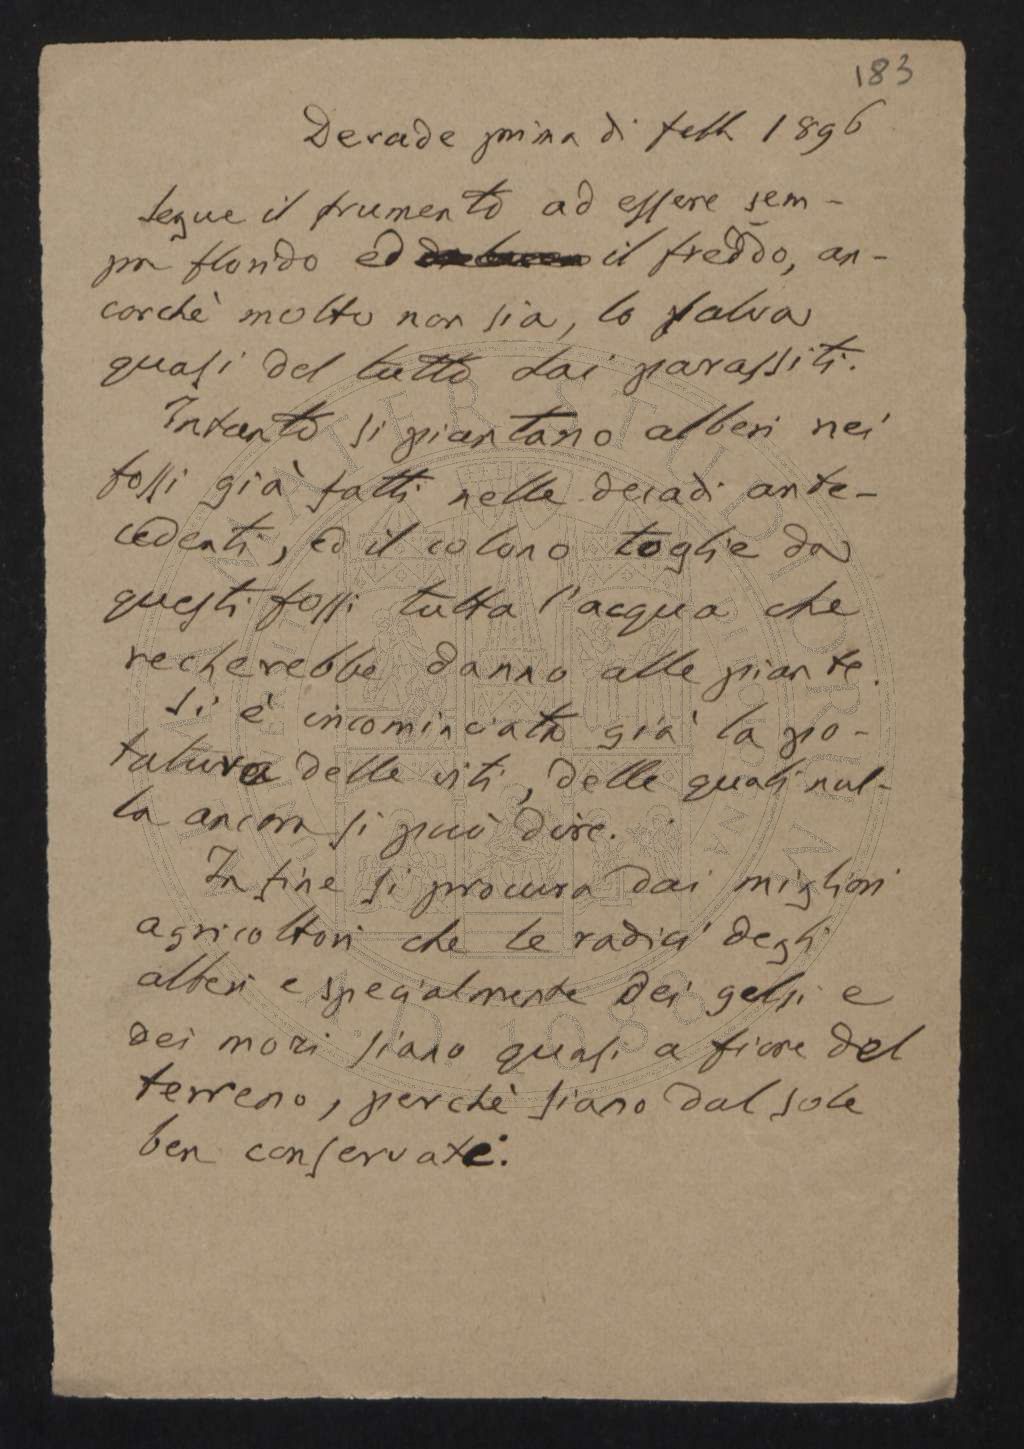 183
Decade prima di febb 1896
Segue il frumento ad essere sem-
pre florido ed il freddo, an-
corchè molto non sia, lo salva
quasi del tutto dai parassiti.
Intanto si piantano alberi nei
fossi già fatti nelle decadi ante-
cedenti, ed il colono toglie da
questi fossi tutta l'acqua che
recherebbe danno alle piante.
Si è incominciata già la po-
tatura delle viti, delle quali nul-
la ancora si può dire.
Infine si procura dai migliori
agricoltori che le radici degli
alberi e specialmente dei gelsi e
dei mori siano quasi a fiore del
terreno, perchè siano dal sole
ben conservate.
ALMA MATER STUDIORUM
A.D. 1088